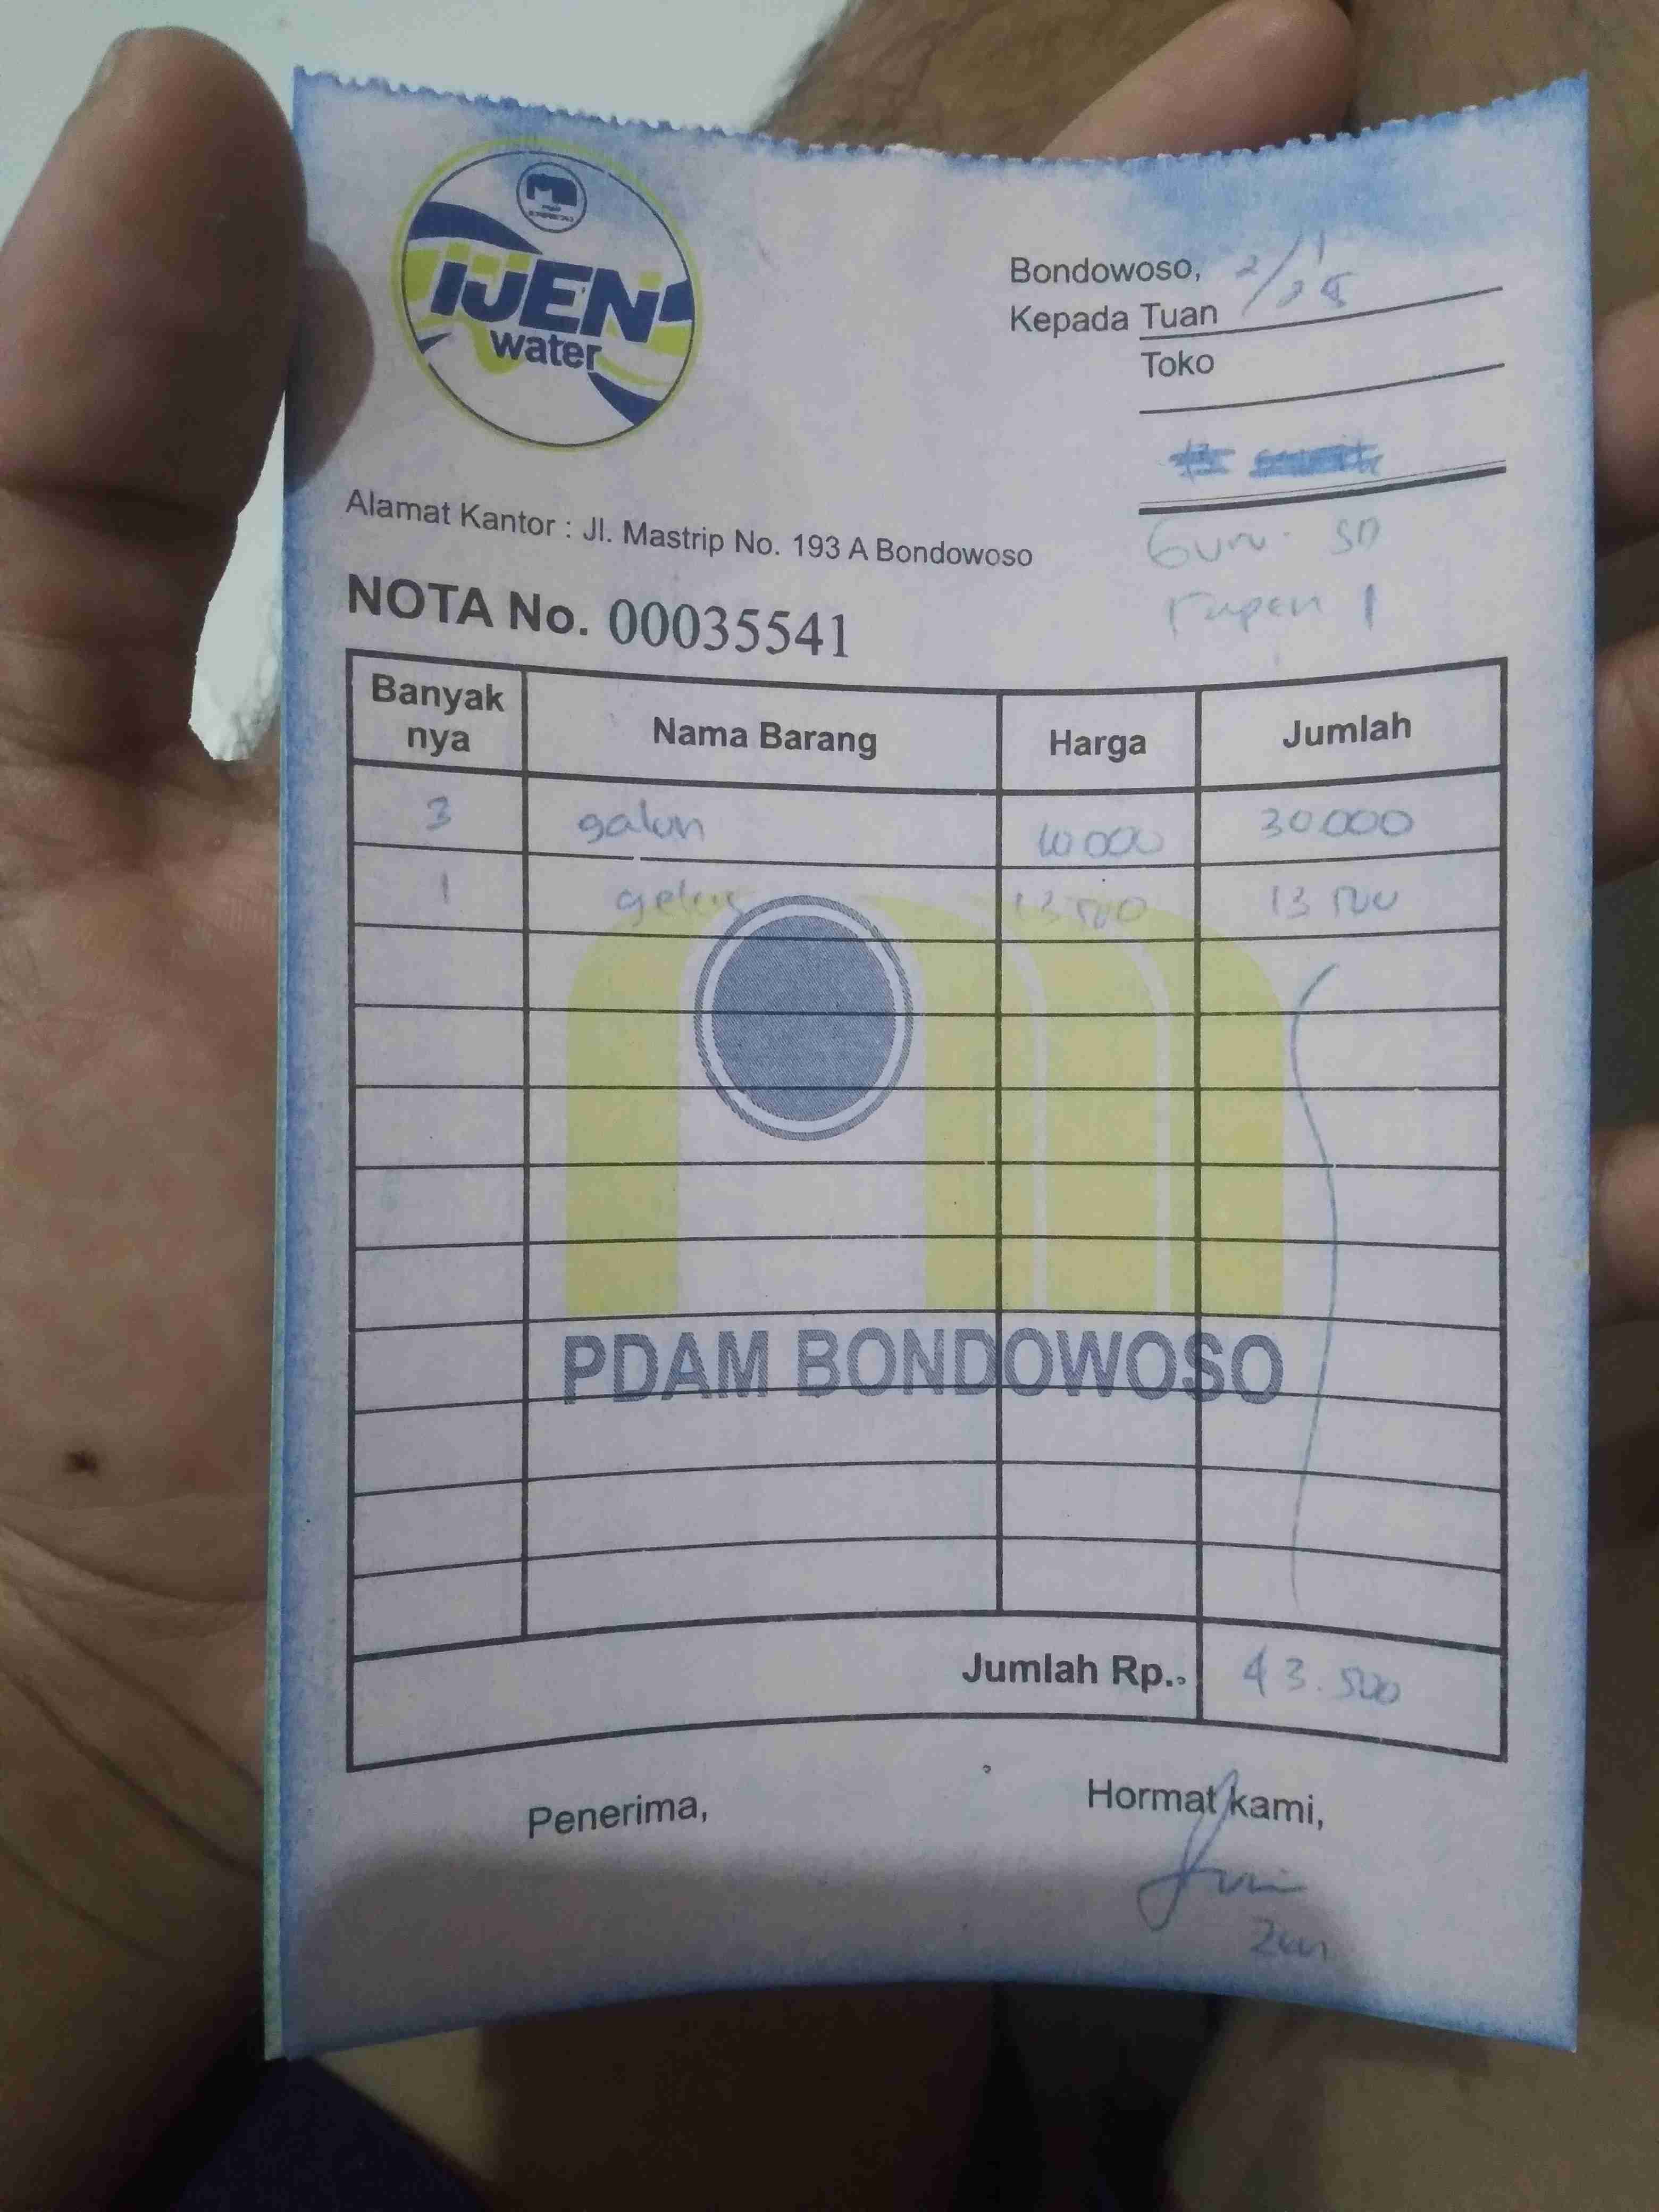 IJEN
water
Bondowoso, 2/1
Kepada Tuan
Toko
Guru SD
Alamat Kantor : Jl. Mastrip No. 193 A Bondowoso
NOTA No. 00035541
Banyak nya Nama Barang Harga Jumlah
3 galon 10 000 30.000
1 gelas 13 500 13 500
PDAM BONDOWOSO
Jumlah Rp.. 43.500
Penerima, Hormat kami,